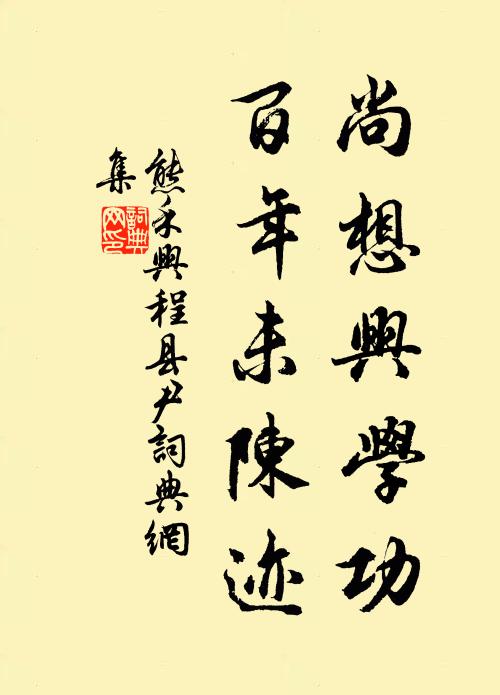 尚想興學功
百年未陳迹
熊禾興程县尹詞典網
集
詞典
网印